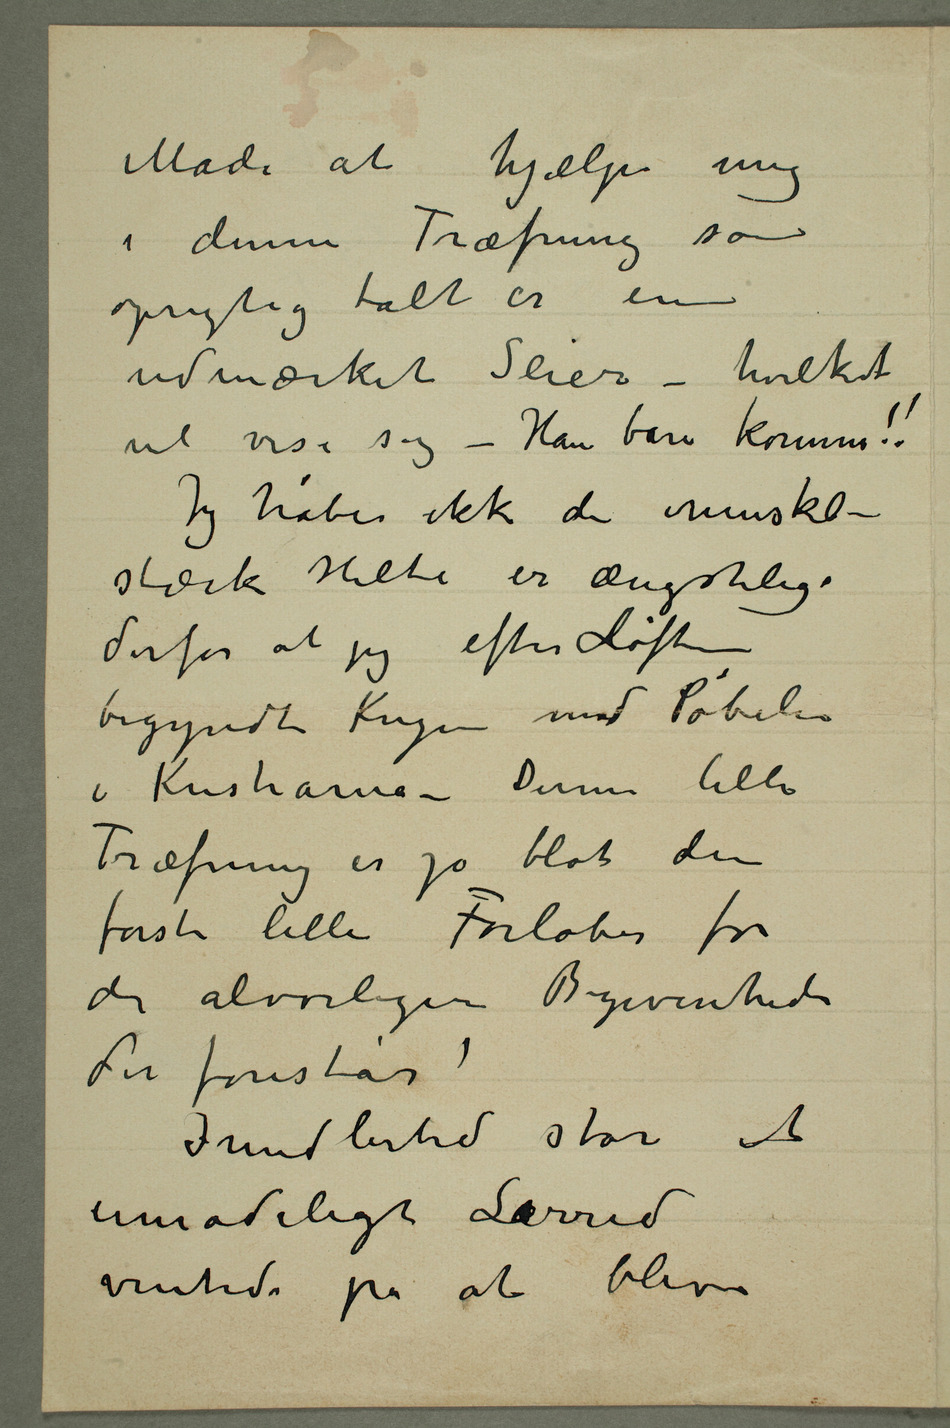 Måde at hjælpe mig
i denne Træfning som
oprigtig talt er en
udmærket Seier – hvilket
vil vise sig – Han bare komme!!
Jeg håber ikke de muskel-
stærke Helte er ængstelige
derfor at jeg efter Løftene
begyndte Krigen med Pøbelen
i Kristiania – Denne lille
Træfning er jo blot den
første lille Forløber for
de alvorligere Begivenheder
der forestår!
Imidlertid står et
umådeligt Lærred
ventede på at blive